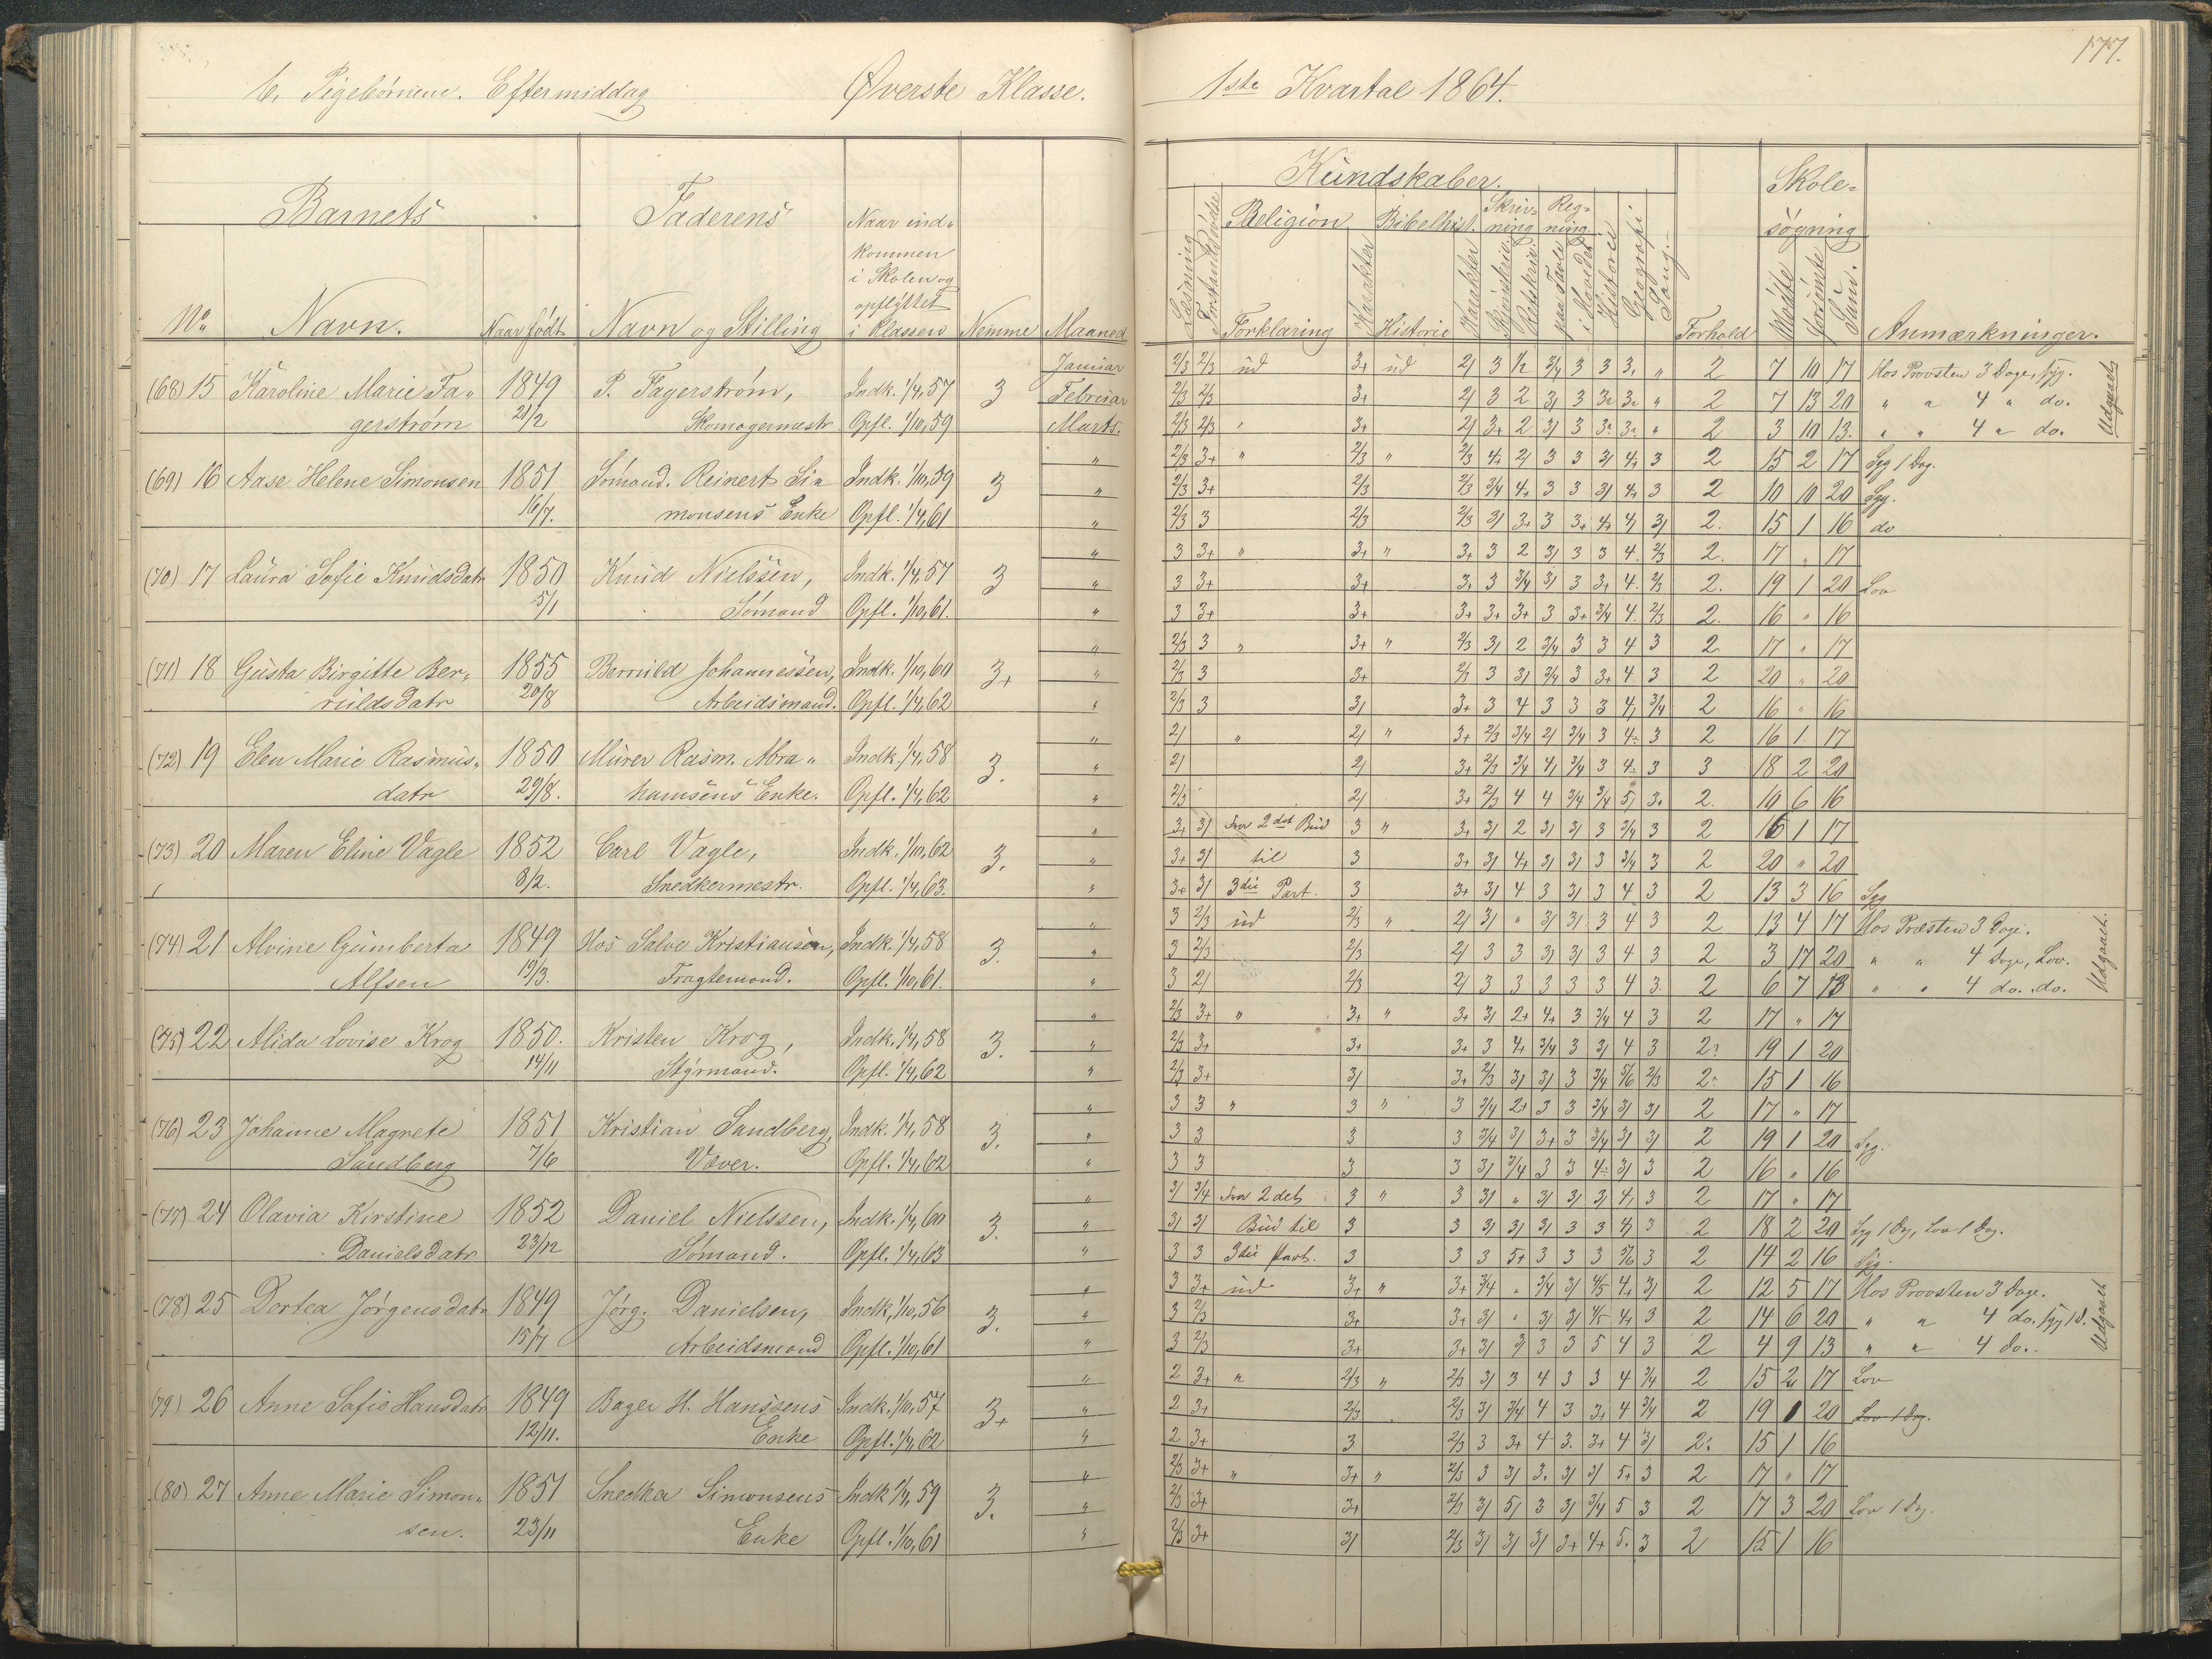 177.
b, Pigebörnene. Eftermiddag Øverste Klasse. 1ste Kvartal 1864.
Barnets Faderens Naar ind-
kommen
i Skolen og
opflyttet
No Navn. Naar født Navn og Stilling i Klassen Nemme Maaned
Kundskaber. Skole-
søgning
Læsning Forstandsøvelse Religion Bibelhist. Skriv-
ning Reg-
ning Historie Geografi Sang.
Forklaring Karakter Historie Karakter Skjønskriv. Retskriv. paa Tavle i Hovedet Forhold Mødte Forsømte Sum. Anmærkninger.
Januar 2/3 2/3 ud 3+ ud 2/ 3 1/2 3/4 3 3 3, " 2 7 10 17 Hos Provsten 3 Dage, syg.
(68) 15 Karoline Marie Fa- 1849 P. Fagerstrøm, Indk. 1/4, 57 3 Februar 2/3 2/3 3+ 2/ 3 2 3/ 3 3 3 " 2 7 13 20 " " 4 " do. Udgaaet
gerstrøm 21/2 Skomagermestr Opfl. 1/10, 59 Marts. 2/3 2/3 3+ 2/ 3+ 2 3/ 3 3 3 " 2 3 10 13. " " 4 " do.
" 2/3 3+ " 2/3 " 2/3 4+ 2/ 3 3 3/ 4+ 3 2 15 2 17 Syg 1 Dag.
(69) 16 Aase Helene Simonsen 1851 Sømand. Reinert Si- Indk. 1/10, 59 3 " 2/3 3+ 2/3 2/3 3/4 4+ 3 3 3/ 4+ 3 2 10 10 20 Syg.
16/7. monsens Enke Opfl. 1/4, 61 " 2/3 3 2/3 2/3 3/ 3+ 3 3+ 4+ 4/ 3/ 2. 15 1 16 do
" 3 3+ " 3+ " 3+ 3 2 3/ 3 3 4. 2/3 2. 17 " 17
(70) 17 Laura Sofie Knudsdatr 1850 Knud Nielssen, Indk. 1/4, 57 3 " 3 3+ 3+ 3+ 3 3/4 3/ 3 3+ 4. 2/3 2. 19 1 20 Lov
5/1 Sømand Opfl. 1/10, 61. " 3 3+ 3+ 3+ 3+ 3+ 3 3+ 3/4 4. 2/3 2. 16 " 16
" 2/3 3 " 3+ " 2/3 3/ 2 3/4 3 3 4 3 2. 17 " 17
(71) 18 Gusta Birgitte Ber- 1855 Berruld Johannessen, Indk. 1/10, 60 3+ " 2/3 3 3+ 2/3 3 3/ 3/4 3 3+ 4 3 2 20 " 20
rulds Datr 20/8 Arbeidsmand. Opfl. 1/4, 62 " 2/3 3 3/ 3+ 3 4 3 3 3 4/ 3/4 2 16 " 16
" 2/ " 2/ " 3+ 2/3 3/4 2/ 3/4 3 4- 3 2 16 1 17
(72) 19 Elen Marie Rasmus- 1850 Murer Rasm. Abra- Indk. 1/4, 58 3. " 2/ 2/ 3+ 2/3 3/4 4/ 3/4 3 4- 3 3 18 2 20
datr 29/8. hamsens Enke. Opfl. 1/4, 62 " 2/3 2/ 3+ 2/3 4 4 3/4 3/4 5/ 3+ 2. 10 6 16
" 3+ 3/ Fra 2det Bud 3 " 3+ 3/ 2 3/ 3/ 3 3/4 3 2 16 1 17
(73) 20 Maren Eline Vagle 1852 Carl Vagle, Indk. 1/10, 62 3. " 3+ 3/ til 3 3+ 3/ 4+ 3/ 3/ 3 3/4 3 2 20 " 20
8/2. Snedkermestr. Opfl. 1/4, 63. " 3+ 3/ 3die Part. 3 3+ 3/ 4 3 3/ 3 4 3 2 13 3 16 Syg
" 3 2/3 ud 2/3 " 2/ 3/ " 3/ 3/ 3 4 3 2 13 4 17 Hos Præsten 3 Dage.
(74) 21 Alvine Gumberta 1849 Hos Salve Kristiansen, Indk. 1/4, 58 3. " 3 2/3 2/3 2/ 3 3 3/ 3/ 3 4 3 2 3 17 20 " " 4 Dage, Lov. Udgaaet.
Alfsen 19/3. Fragtemand. Opfl. 1/10, 61. " 3 2/ 2/3 2/ 3 3 3 3 3 4 3 2 6 7 13 " " 4 do. do.
" 2/3 3+ " 3+ " 3+ 3/ 2+ 4+ 3 3/4 4 3 2 17 " 17
(75) 22 Alida Lovise Krog 1850. Kristen Krog, Indk. 1/4, 58 3. " 2/3 3+ 3+ 3+ 3 4+ 3/4 3 3/ 4 3 2 19 1 20
14/11 Styrmand. Opfl. 1/4, 62 " 2/3 3+ 3/ 3+ 2/3 3/ 3/ 3 3/4 5/6 2/3 2 15 1 16
" 3 3 " 3 " 3 3/4 2+ 3 3 3/4 3/ 3/ 2 17 " 17
(76) 23 Johanne Magrete 1851 Kristian Sundberg, Indk. 1/4, 58 3. " 3 3 3 3 3/4 3/ 3+ 3 3/4 3/ 3/ 2 19 1 20 Syg.
Sundberg 7/6 Væver. Opfl. 1/4, 62 " 3 3 3 3 3/ 3/4 3 3 4- 3/ 3 2 16 " 16
" 3/ 3/4 Fra 2det 3 " 3 3/ " 3/ 3/ 3/ 4/ 3 2 17 " 17
(77) 24 Olavia Kirstine 1852 Daniel Nielssen, Indk. 1/4, 60 3. " 3/ 3/ Bud til 3 3 3/ 3/ 3/ 3 3 4/ 3 2 18 2 20 Syg 1 Dag, Lov 1 Dag.
Danielsdatr 23/12 Sømand. Opfl. 1/4, 63 " 3 3 3die Part. 3 3 3 5+ 3 3 3 5/6 3 2 14 2 16 Syg.
" 3 3+ ud 3+ " 3+ 3/4 " 3/4 3/ 4/5 4+ 3/ 2 12 5 17 Hos Provsten 3 Dage.
(78) 25 Dortea Jørgensdatr 1849 Jørg. Danielsen, Indk. 1/10, 56 3. " 3 2/3 3+ 3+ 3/ " 3/ 3/ 4/5 4+ 3 2 14 6 20 " " 4 do. syg 1 d. Udgaaet
15/7 Arbeidsmand Opfl. 1/10, 61 " 3 2/3 3+ 3+ 3/ 3/ 3 3 5 4 3 2 4 9 13 " " 4 do.
" 2 3+ " 2/3 " 2/3 3/ 3 4 3 3 4 3/4 2 15 2 17 Lov
(79) 26 Anne Sofie Hansdatr 1849 Bager H. Hanssens Indk. 1/10, 57 3+ " 2 3+ 2/3 2/3 3/ 3/4 4 3 3+ 4 3/4 2 19 1 20 Lov 1 Dag.
12/11. Enke Opfl. 1/4, 62 " 2 3+ 3 2/3 3 3+ 4 3. 3+ 4 3/ 2. 15 1 16
" 2/3 3+ " 3+ " 2/3 3 3/ 3. 3/ 3/ 5+ 3 2 17 " 17
(80) 27 Anne Marie Simon- 1851 Snedker Simonsens Indk 1/4, 59 3. " 2/3 3+ 3+ 2/3 3/ 5/ 3 3/ 3/4 5 3 2 17 3 20 Lov 1 Dag.
sen. 23/11 Enke Opfl. 1/10, 61 " 2/3 3+ 3/ 2/3 3/ 3/ 3/ 3+ 4+ 5. 3 2 15 1 16